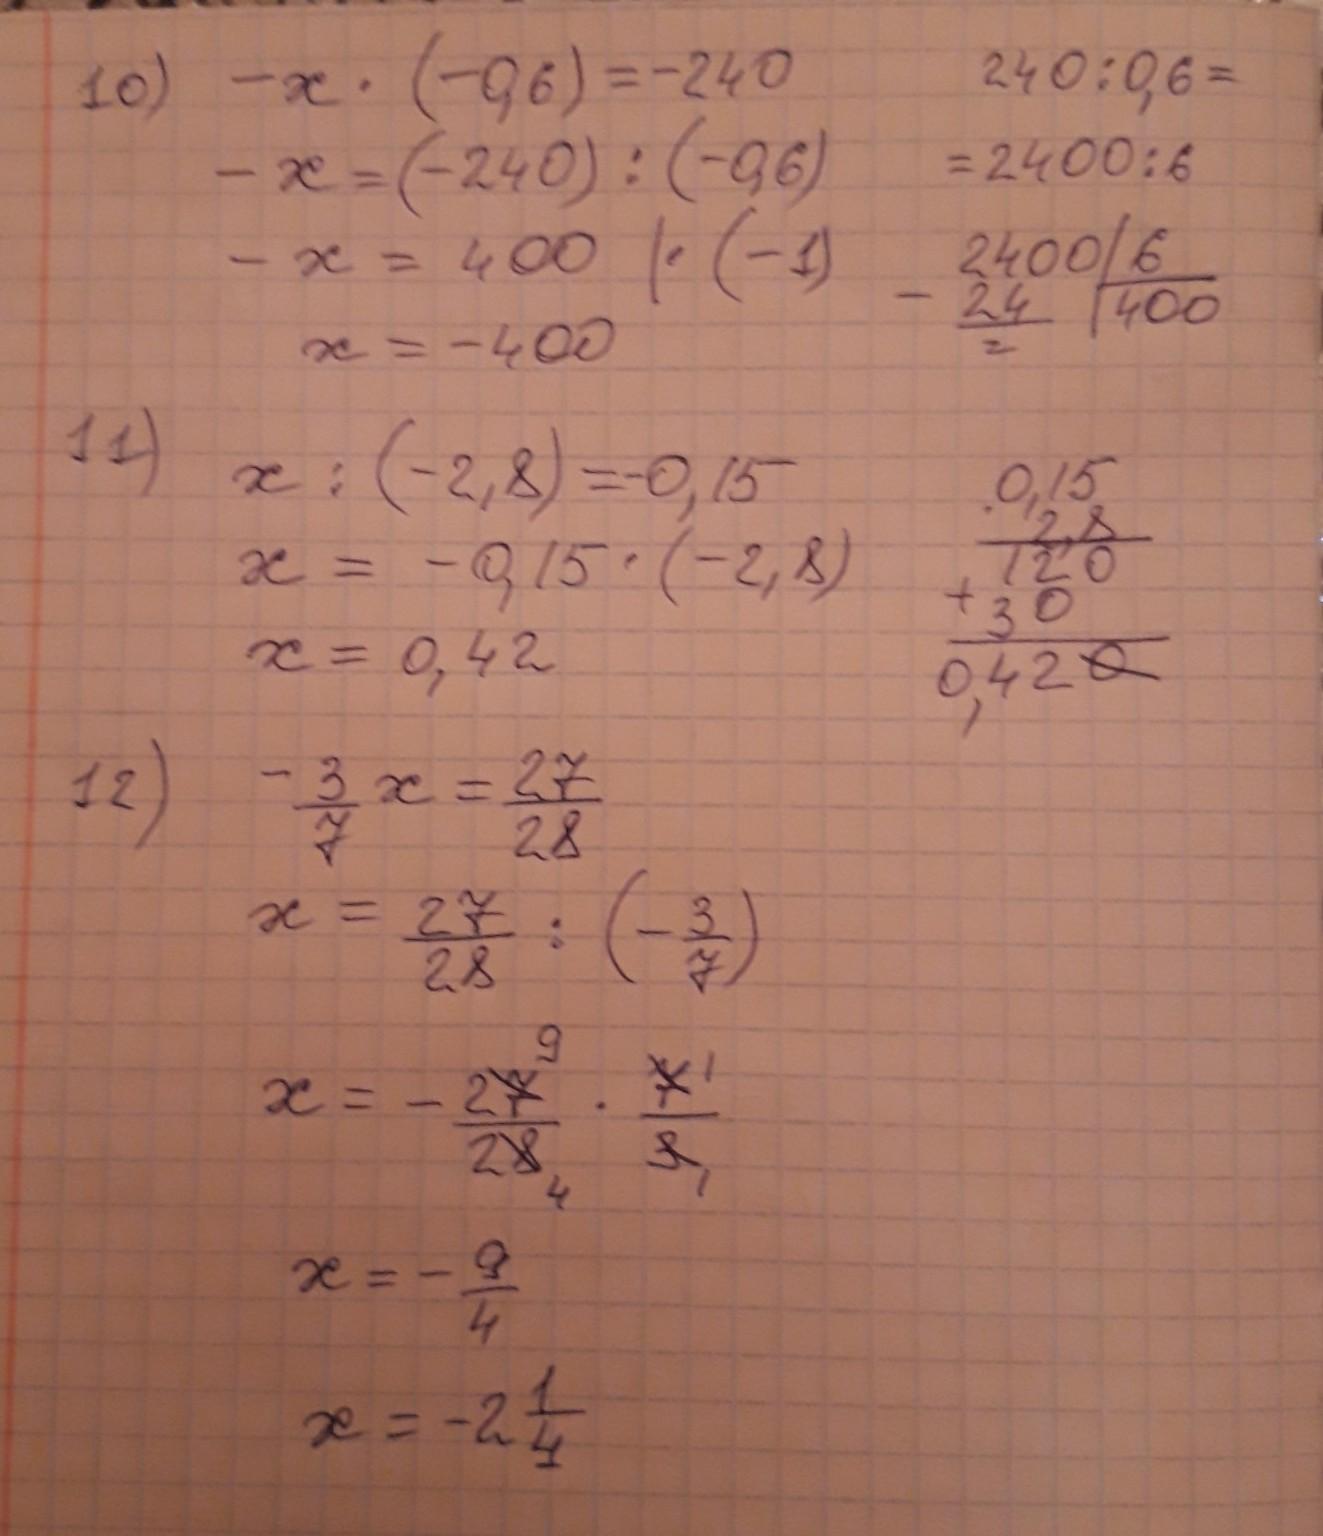 10) -x · (-0,6) = -240
-x = (-240) : (-0,6)
-x = 400 |· (-1)
x = -400
240 : 0,6 =
= 2400 : 6
2400 | 6
- 24 | 400
=
11) x : (-2,8) = -0,15
x = -0,15 · (-2,8)
x = 0,42
· 0,15
2,8
120
+ 30
0,420
12) - 3/7 x = 27/28
x = 27/28 : (- 3/7)
x = - 27/28 · 7/3
9 1
4 1
x = - 9/4
x = -2 1/4